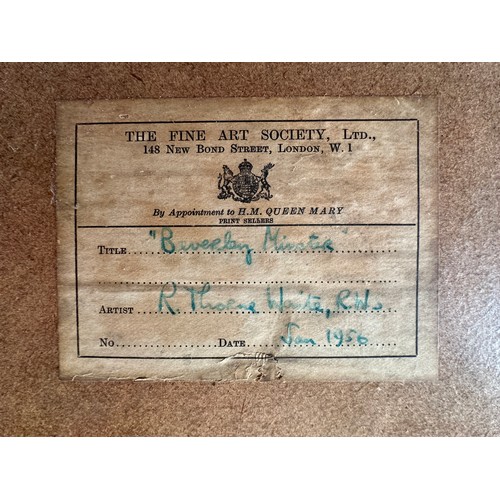 THE FINE ART SOCIETY, LTD.,
148 NEW BOND STREET, LONDON, W. 1
By Appointment to H.M. QUEEN MARY
PRINT SELLERS
TITLE "Beverley Minster"
ARTIST R. Thorne Waite, R.W.
NO. DATE Jan 1956